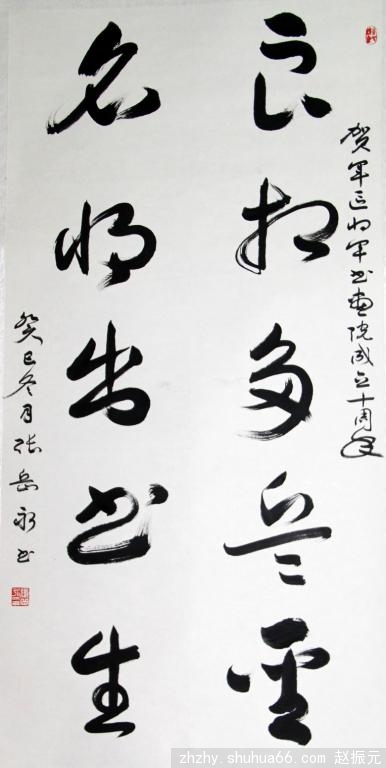 贺軍区将軍书画院成立十周年
良相多兵
名将出书生
癸巳冬月张岳永书
zhzhy.shuhua66.com 赵振元